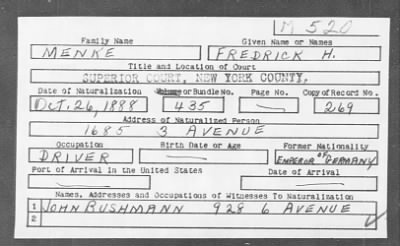 M 520
Family Name Given Name or Names
MENKE FREDRICK H.
Title and Location of Court
SUPERIOR COURT, NEW YORK COUNTY.
Date of Naturalization Volume or Bundle No. Page No. Copy of Record No.
OCT. 26, 1888 435 — 269
Address of Naturalized Person
1685 3 AVENUE
Occupation Birth Date or Age Former Nationality
DRIVER — EMPEROR OF GERMANY
Port of Arrival in the United States Date of Arrival
— —
Names, Addresses and Occupations of Witnesses To Naturalization
1 JOHN BUSHMANN 928 6 AVENUE
2